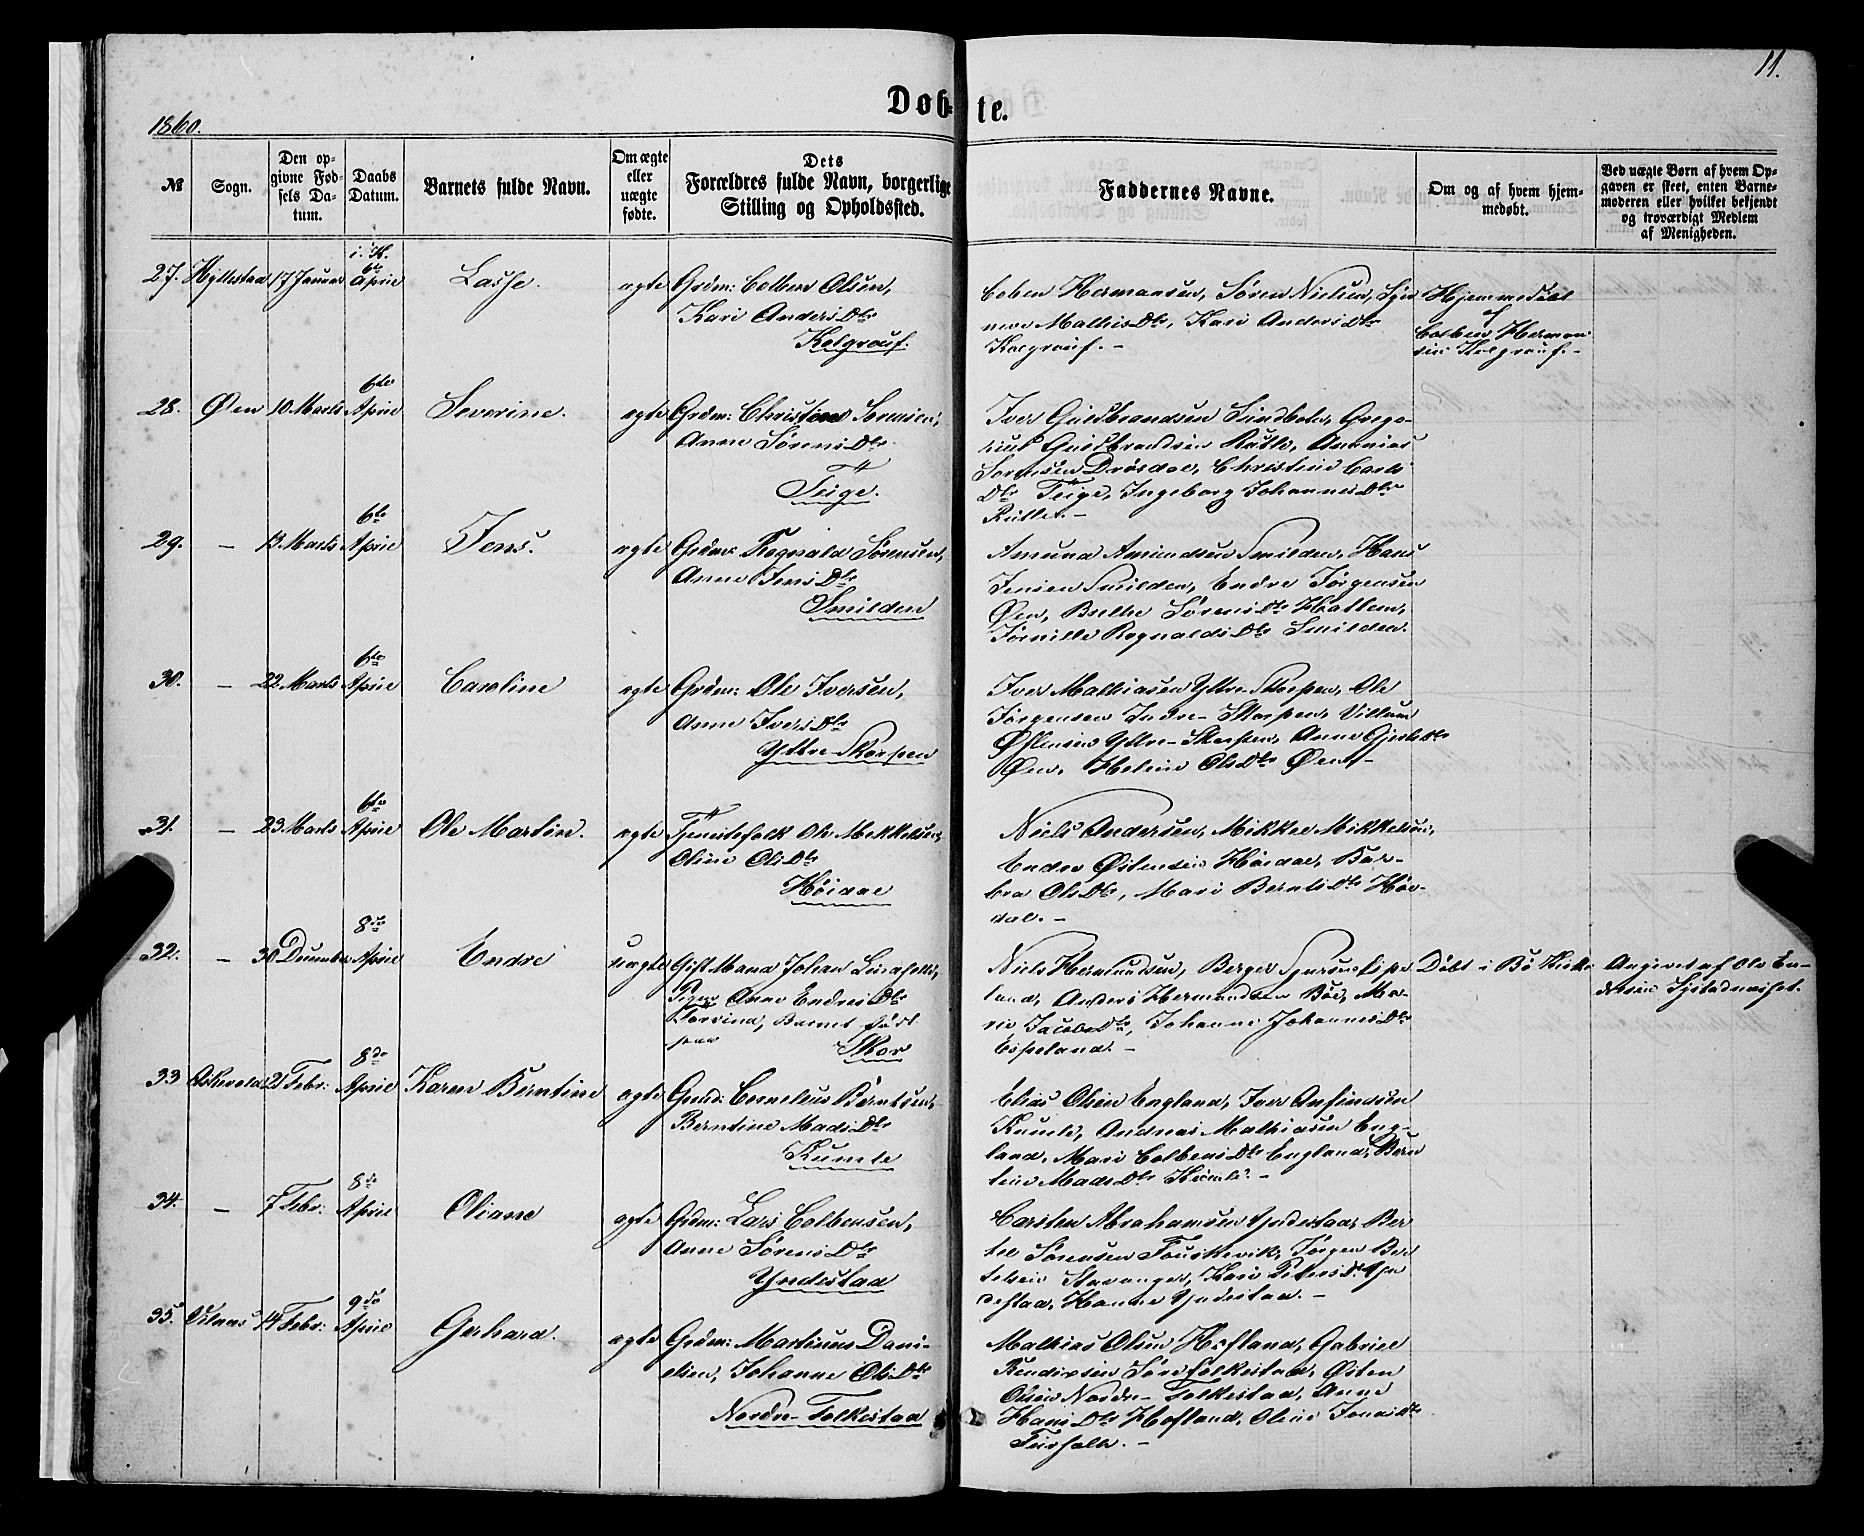 11.
Døbte.
1860.
№
Sogn.
Den op-
givne Fød-
sels Da-
tum.
Daabs
Datum.
Barnets fulde Navn.
Om ægte
eller
uægte
fødte.
Dets
Forældres fulde Navn, borgerlige
Stilling og Opholdssted.
Faddernes Navne.
Om og af hvem hjem-
medøbt.
Ved uægte Børn af hvem Op-
gaven er skeet, enten Barne-
moderen eller hvilket bekjendt
og troværdigt Medlem
af Menigheden.
i. K.
6te
27. Hyllestad 17 Januar April Lasse. ægte Grdm: Colben Olsen,
Kari Anders Dtr
Kolgrouf.
Coben Hermansen, Søren Nielsen,
Mathis Dtr, Kari Anders Dtr
Kolgrouf. -
Hjemmedøbt
af
Colben Herman-
sen Kolgrouf. -
6te
28. Øen 10. Marts April Severine. ægte Grdm: Christen Sørensen,
Anne Sørens Dtr
Teige.
Iver Guldbrandsen Sundbolt, Grego-
rius Guldbrandsen Rutle, Ananias
Sørensen Drøsdal, Christine Carls
Dtr Teige, Ingeborg Johannes Dtr
Rutle. -
6te
29. - 13. Marts April Jens. ægte Grdm: Rognald Sørensen,
Anne Jens Dtr
Smilden
Amund Amundsen Smilden, Hans
Jensen Smilden, Endre Jørgensen
Øen, Brithe Sørens Dtr Hatlem,
Pernille Rognalds Dtr Smilden.
6te
30. - 22. Marts April Caroline ægte Grdm: Ole Iversen,
Anne Ivers Dtr
Yttre-Skorpen
Iver Mathiasen Yttre-Skorpen, Ole
Jørgensen Indre-Skorpen, Villum
Østensen Yttre-Skorpen, Anne Gjerts Dtr
Øen, Heline Ols Dtr Øen. -
6te
31. - 23. Marts April Ole Martin. ægte Tjenestefolk Ole Mikkelsen,
Oline Ols Dtr
Høidal
Niels Andersen, Mikkel Mikkelsen,
Endre Østensen Høidal, Bar-
bra Ols Dtr, Mari Bernts Dtr Høi-
dal. -
8de
32. - 30 December April Endre uægte Gift Mand Johan
Pigen Anne Endres Dtr
Barnet født
paa Skor
Niels Hermundsen, Berger
land, Anders Hermundsen Bøe, Ma-
rie Jacobs Dtr, Johanne Johannes Dtr
Espeland. -
Døbt i Bø Kirke
Angivet af Ole En-
dresen
8de
33 Askevold 2 Febr: April Karen Berntine ægte Grmd: Cornelius Berntsen,
Berntine Mads Dtr
Kumle
Elias Olsen England, Iver Anfindsen
Kumle, Andreas Mathiasen Eng-
land, Mari Colbens Dtr England, Bern-
tine Mads Dtr Kumle. -
8de
34. - 7 Febr. April Oliane ægte Grdm: Lars Colbensen,
Anne Sørens Dtr
Yndestad
Carsten Abrahamsen Yndestad, Ber-
tel Sørensen Fouskevik, Jørgen Ber-
telsen Stavanger, Kari Peters Dtr Yn-
destad, Hanne Yndestad. -
9de
35. 14 Febr: April Gerhard. ægte Grdm: Martinus Dani-
elsen, Johanne Ols Dtr
Nordre-Folkestad
Mathias Olsen Hofland, Gabriel
Bendixsen Søre Folkestad, Østen
Olsen Nordre-Folkestad, Anne
Hans Dtr Hofland, Oline Jonas Dtr